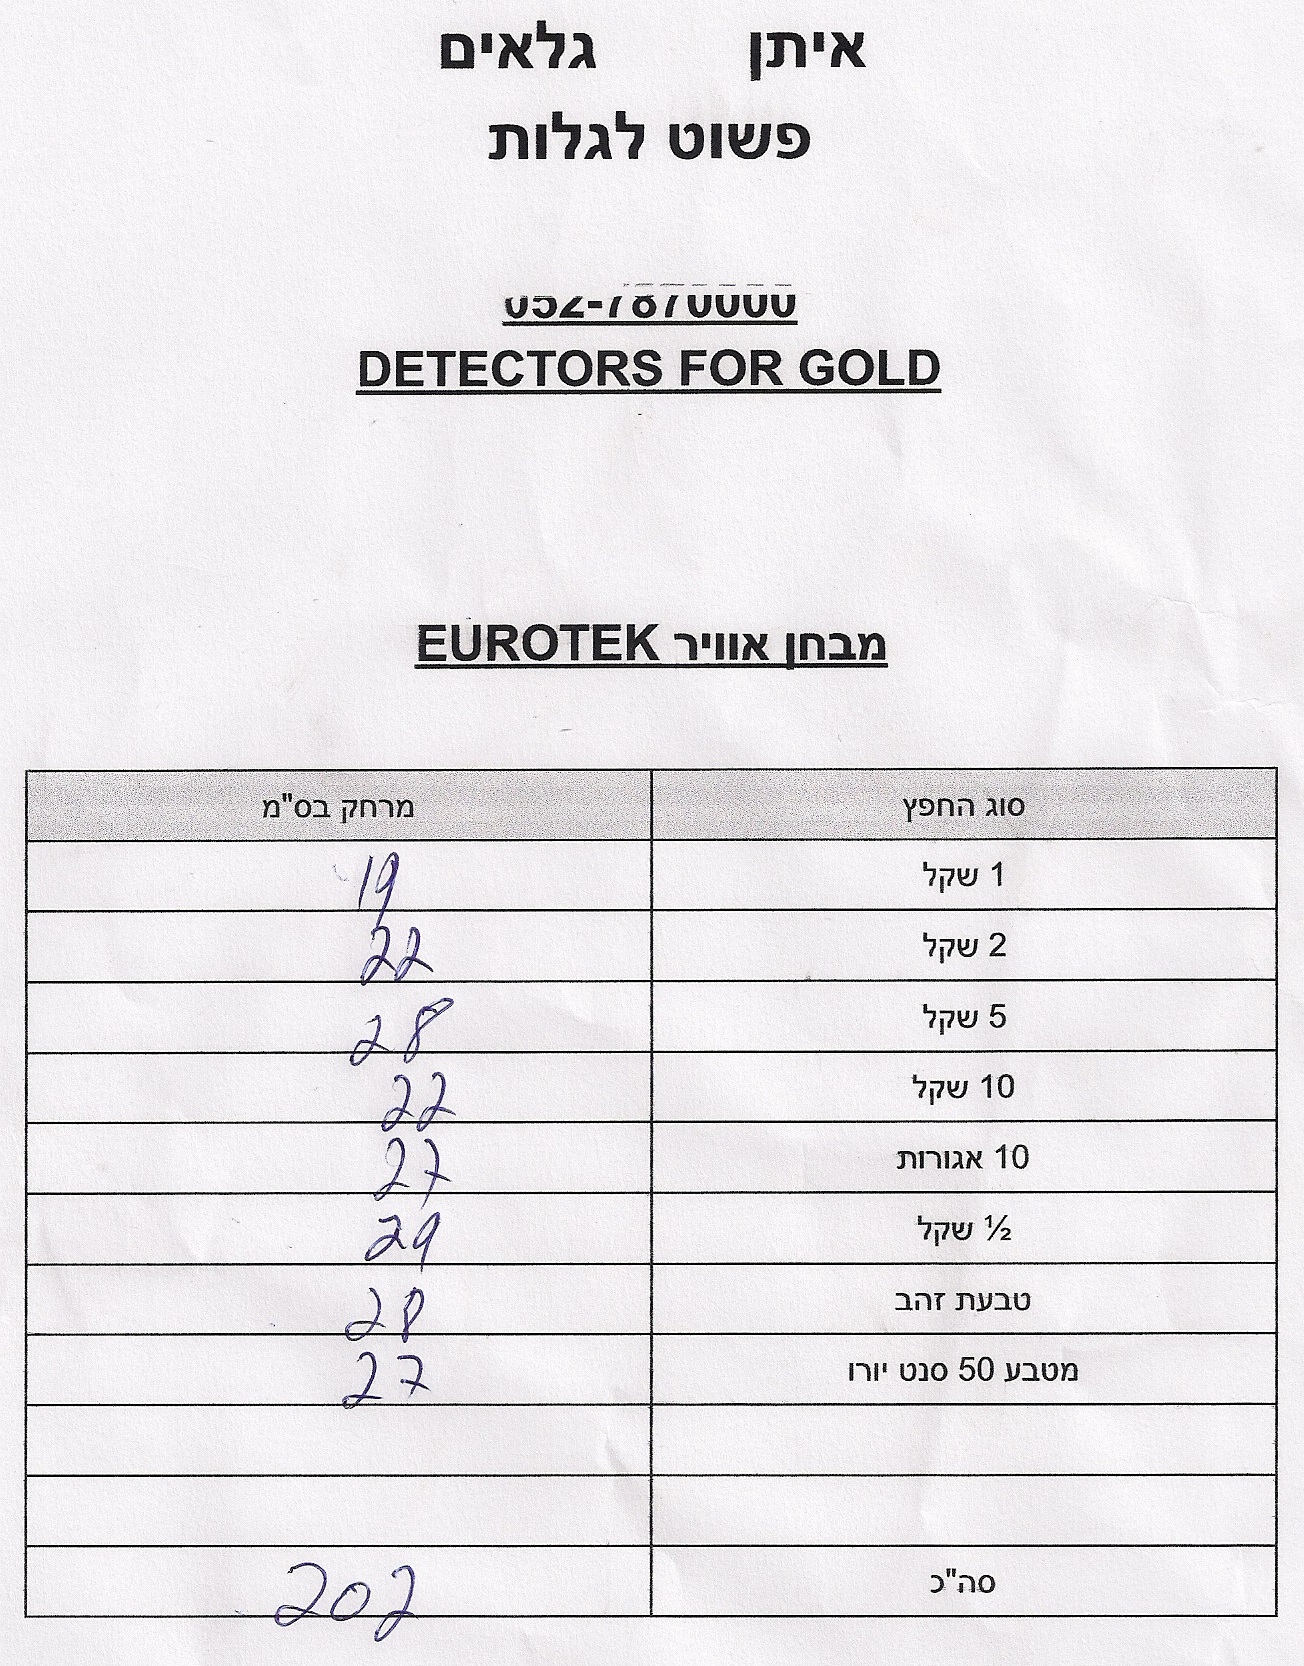 איתן גלאים
פשוט לגלות
052-7870000
DETECTORS FOR GOLD
מבחן אוויר EUROTEK
סוג החפץ מרחק בס"מ
1 שקל 19
2 שקל 22
5 שקל 28
10 שקל 22
10 אגורות 27
½ שקל 29
טבעת זהב 28
מטבע 50 סנט יורו 27
סה"כ 202